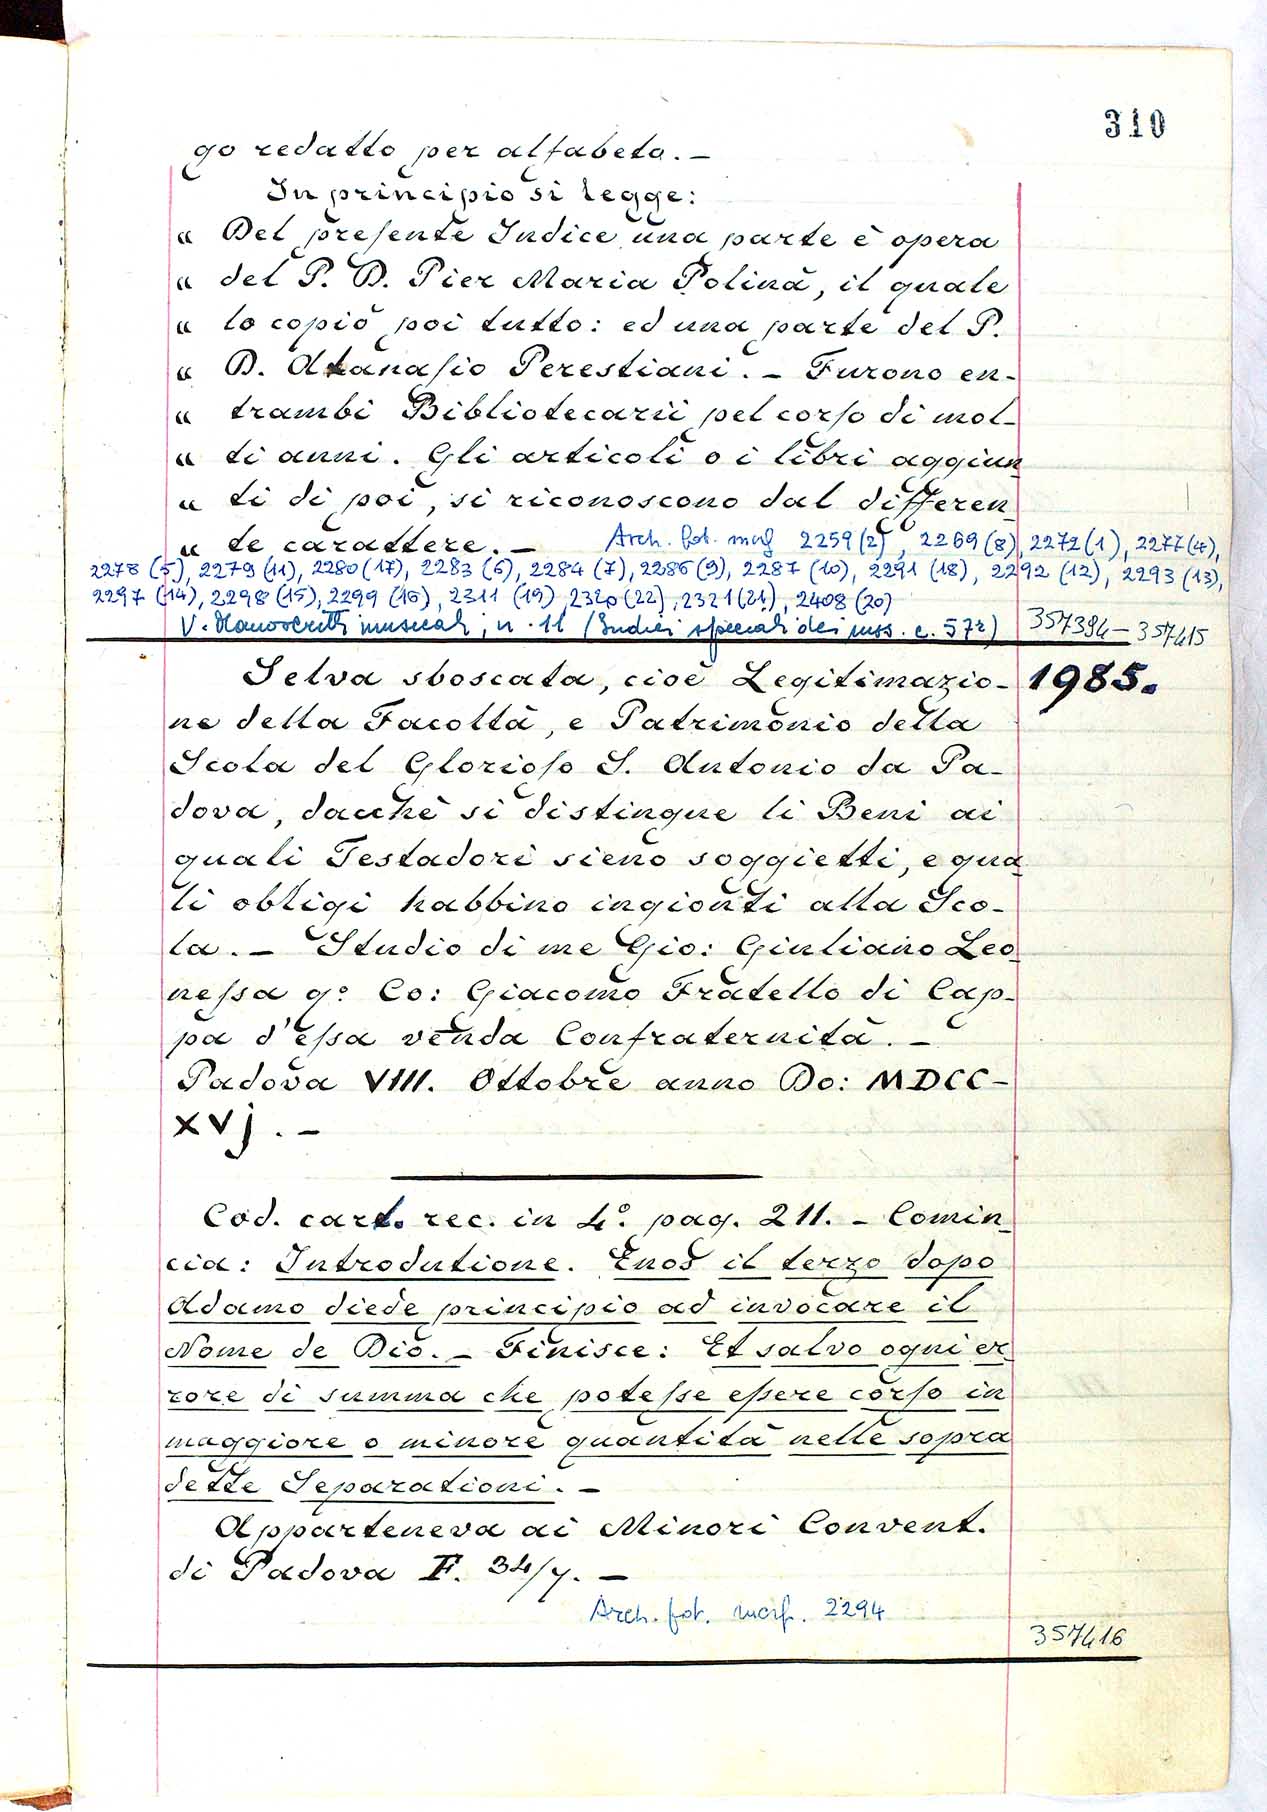 310
go redatto per alfabeto. —
In principio si legge:
“ Del preſente Indice una parte è opera
“ del P. D. Pier Maria Polinà, il quale
“ lo copiò poi tutto: ed una parte del P.
“ D. Atanaſio Perestiani. — Furono en-
“ trambi Bibliotecarii pel corſo di mol-
“ ti anni. Gli articoli o i libri aggiun
“ ti di poi, si riconoscono dal differen
“ te carattere. — Arch. fot. 2259 (2), 2269 (8), 2272 (1), 2277 (4),
2278 (5), 2279 (11), 2280 (17), 2283 (6), 2284 (7), 2286 (9), 2287 (10), 2291 (18), 2292 (12), 2293 (13),
2297 (14), 2298 (15), 2299 (16), 2311 (19), 2320 (22), 2321 (21), 2408 (20)
V. Manoscritti musicali, n. 11 (Indici speciali dei mss. c. 57r) 357394 — 357415
Selva sboscata, cioè Legitimazio- 1985.
ne della Facoltà, e Patrimonio della
Scola del Glorioſo S. Antonio da Pa-
dova, dacchè si distingue li Beni ai
quali Testadori sieno soggietti, e qua
li obligi habbino ingionti alla Sco-
la. — Studio di me Gio: Giuliano Leo
neſsa qº Co: Giacomo Fratello di Cap-
pa d'eſsa venda Confraternità. —
Padova VIII. Ottobre anno Do: MDCC-
XVj. —
Cod. cart. rec. in 4º. pag. 211. — Comin
cia: Introdutione. Enos il terzo dopo
Adamo diede principio ad invocare il
Nome de Dio. — Finisce: Et salvo ogni er
rore di summa che poteſse eſsere corſo in
maggiore o minore quantità nelle sopra
dette Separationi. —
Apparteneva ai Minori Convent.
di Padova F. 34/7. —
Arch. fot. 2294
357416